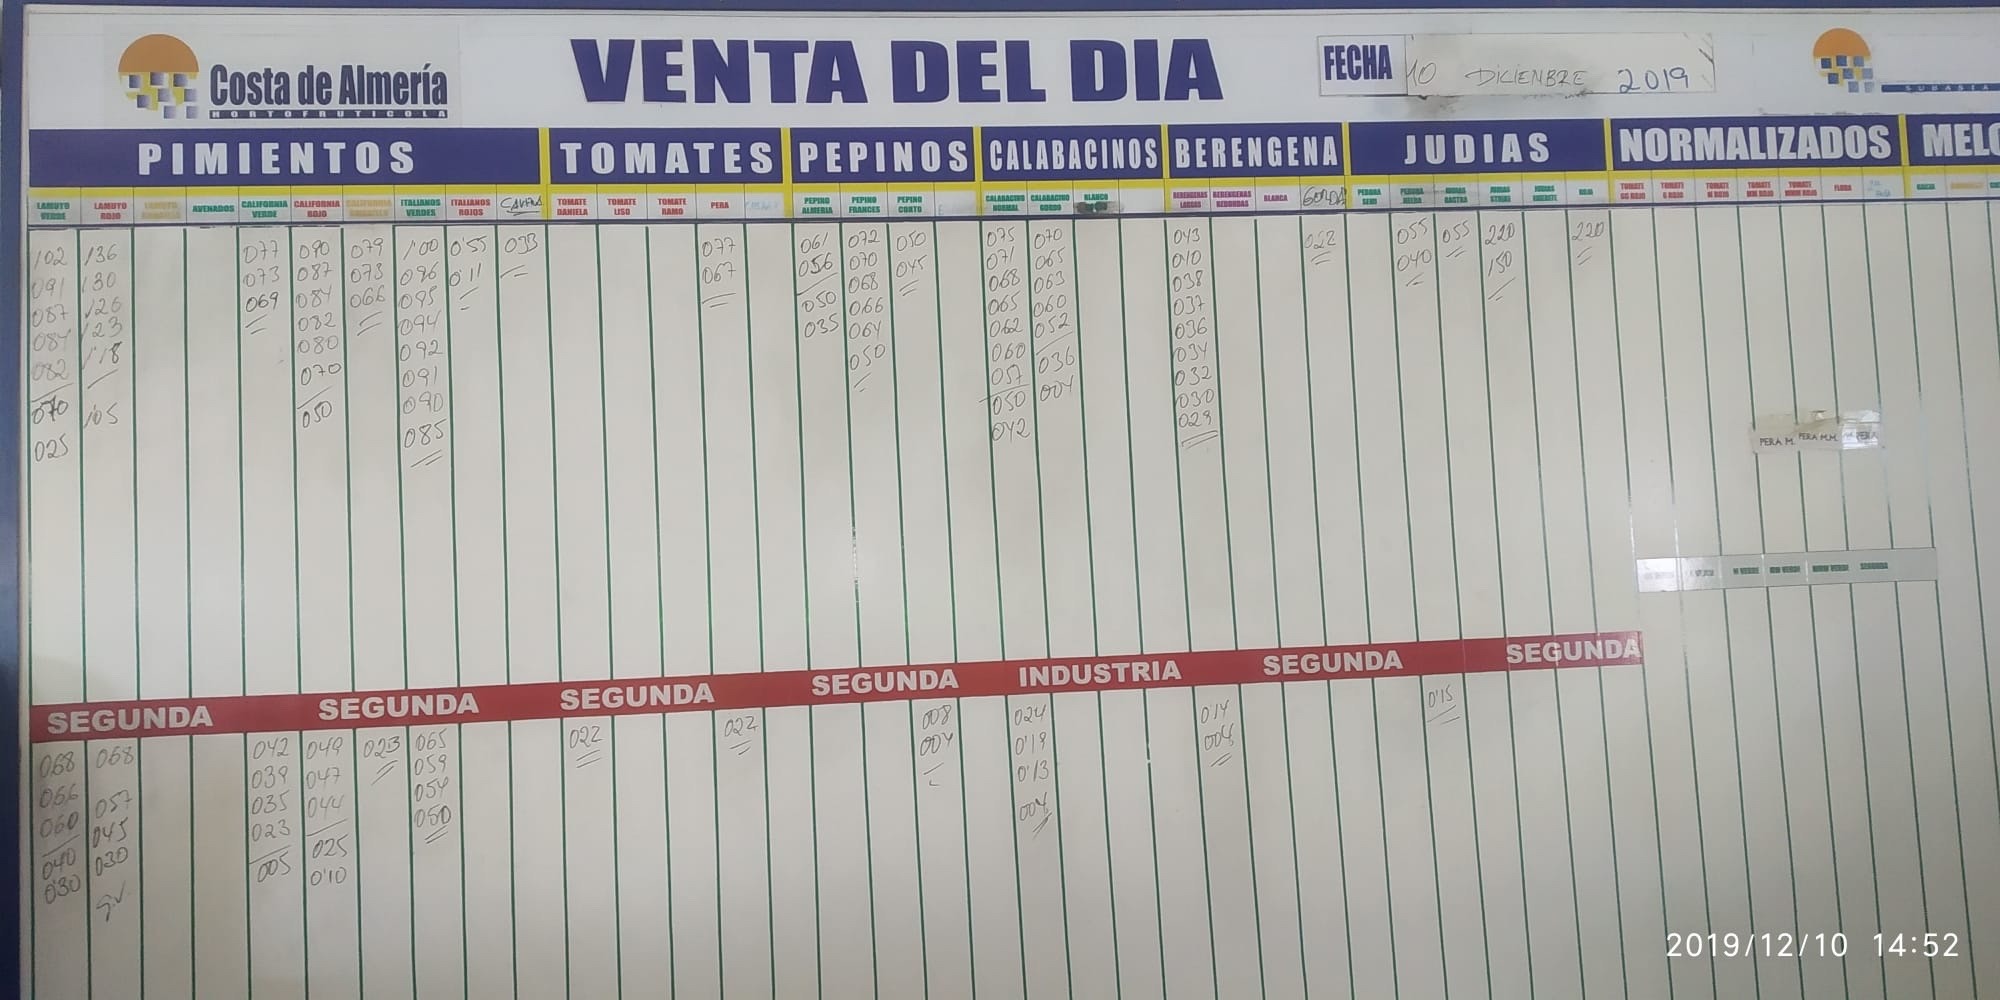 Costa de Almería
HORTOFRUTICOLA
VENTA DEL DIA
FECHA 10 DICIENBRE 2019
SUBASTA
PIMIENTOS TOMATES PEPINOS CALABACINOS BERENGENA JUDIAS NORMALIZADOS MELO
LAMUYO VERDE
LAMUYO ROJO
AVENADOS
CALIFORNIA VERDE
CALIFORNIA ROJO
CALIFORNIA AMARILLO
ITALIANOS VERDES
ITALIANOS ROJOS
TOMATE DANIELA
TOMATE LISO
TOMATE RAMO
PERA
PEPINO ALMERIA
PEPINO FRANCES
PEPINO CORTO
CALABACINO NORMAL
CALABACINO GORDO
BLANCO
BERENGENAS LARGAS
BERENGENAS REDONDAS
BLANCA
GORDA
PERONA SEMI
JUDIAS RASTRA
JUDIAS STRIKE
ROJO
TOMATE GG ROJO
TOMATE G ROJO
TOMATE M ROJO
TOMATE MM ROJO
TOMATE MMM ROJO
FLORA
102 136 077 090 079 1'00 0'55 033 077 061 072 050 075 070 043 022 055 055 220 220
091 130 073 087 073 096 0'11 067 056 070 045 071 065 040 040 150
087 126 069 084 066 095 050 068 068 063 038
084 123 082 094 035 066 065 060 037
082 1'18 080 092 064 062 052 036
070 105 070 091 050 060 036 034
025 050 090 057 004 032
085 050 030
042 029
PERA M. PERA M.M. PERA
M VERDE MM VERDE MMM VERDE SEGUNDA
SEGUNDA SEGUNDA SEGUNDA SEGUNDA INDUSTRIA SEGUNDA SEGUNDA
068 068 042 049 023 065 022 022 008 024 014 0'15
066 057 039 047 059 004 0'19 004
060 045 035 044 054 0'13
040 030 023 025 050 004
030 005 0'10
2019/12/10 14:52